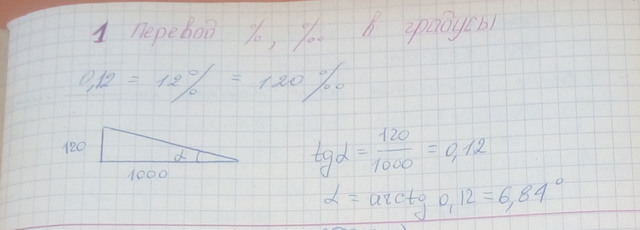 1 Перевод %, ‰ в градусы
0,12 = 12% = 120‰
120
α
1000
tgα = 120/1000 = 0,12
α = arctg 0,12 = 6,84°